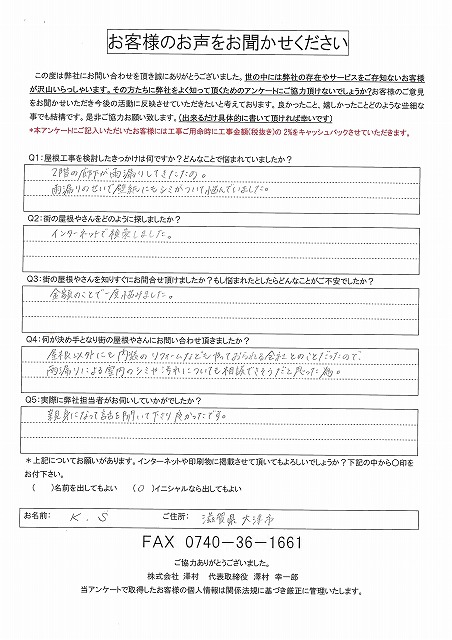 お客様のお声をお聞かせください
この度は弊社にお問い合わせを頂き誠にありがとうございました。世の中には弊社の存在やサービスをご存知ないお客様
が沢山いらっしゃいます。その方たちに弊社をよく知って頂くためのアンケートにご協力頂けないでしょうか？お客様のご意見
をお聞かせいただき今後の活動に反映させていただきたいと考えております。良かったこと、嬉しかったことどのような些細な
事でも結構です。是非ご協力お願い致します。（出来るだけ具体的に書いて頂ければ幸いです）
*本アンケートにご記入いただいたお客様には工事ご用命時に工事金額(税抜き)の 2%をキャッシュバックさせていただきます。
Q1：屋根工事を検討したきっかけは何ですか？どんなことで悩まれていましたか？
2階の廊下が雨漏りしてきたため。
雨漏りのせいで壁紙にもシミがついて悩んでいました。
Q2：街の屋根やさんをどのように探しましたか？
インターネットで検索しました。
Q3：街の屋根やさんを知りすぐにお問合せ頂けましたか？もし悩まれたとしたらどんなことがご不安でしたか？
金額のことで一度悩みました。
Q4：何が決め手となり街の屋根やさんにお問い合わせ頂きましたか？
屋根以外にも内装のリフォームなどもやっておられる会社とのことだったので、
雨漏りによる室内のシミや汚れについても相談できそうだと思った為。
Q5：実際に弊社担当者がお伺いしていかがでしたか？
親身になって話を聞いて下さり良かったです。
＊上記についてお願いがあります。インターネットや印刷物に掲載させて頂いてもよろしいでしょうか？下記の中から〇印を
お付下さい。
（　）名前を出してもよい　（○）イニシャルなら出してもよい
お名前： K.S ご住所： 滋賀県大津市
FAX 0740-36-1661
ご協力ありがとうございました。
株式会社 澤村　代表取締役 澤村 幸一郎
当アンケートで取得したお客様の個人情報は関係法規に基づき厳正に管理いたします。